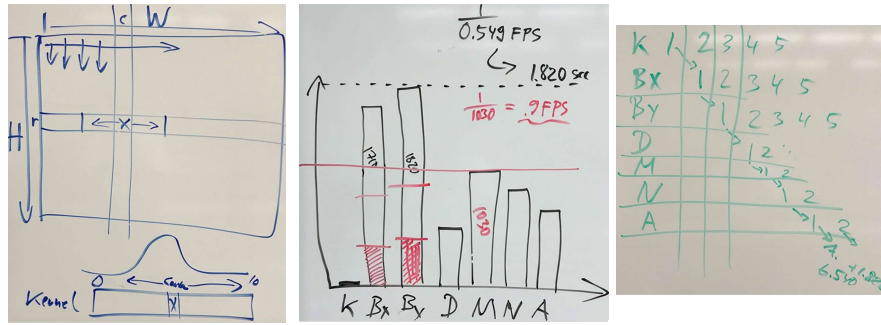 c W
H
r x
0 10
Kernel x
1
0.549 FPS
1.820 sec
1
1030 = .9 FPS
1710 1820
1030
K Bx By D M N A
K 1 2 3 4 5
Bx 1 2 3 4 5
By 1 2 3 4 5
D 1 2
M 1 2
N 1 2
A 1 2
7.